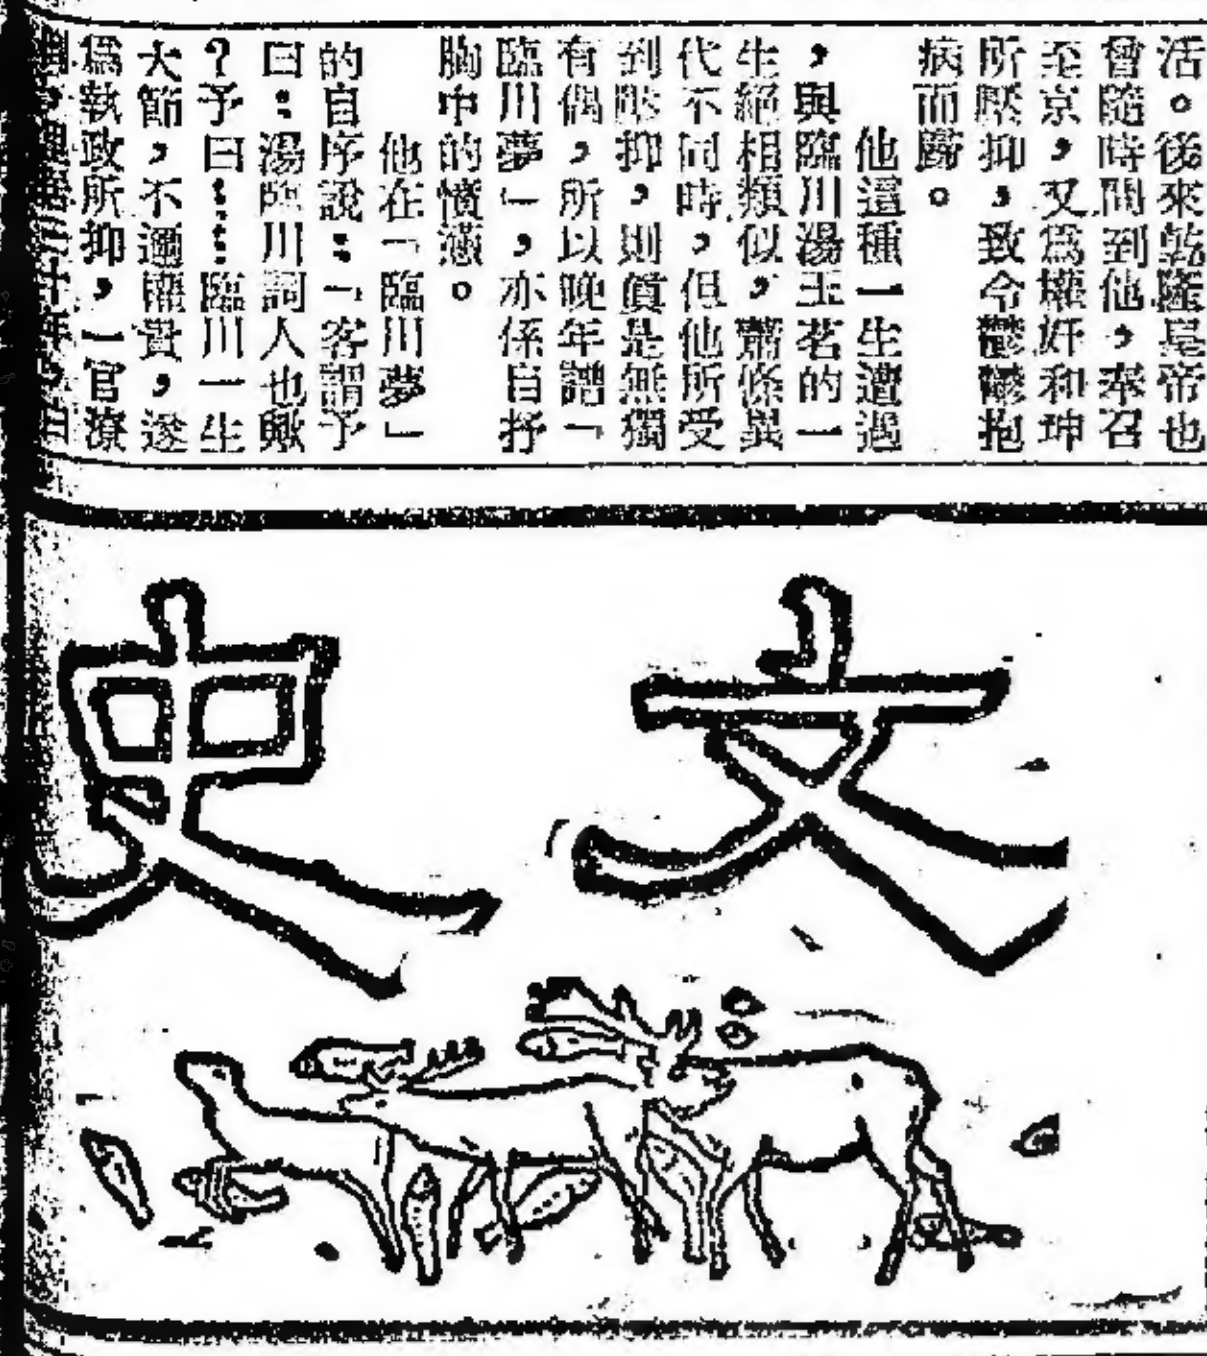 活。後來乾隆皇帝也
曾隨時問到他，奉召
至京，又爲權奸和珅
所壓抑，致令鬱鬱抱
病而歸。
他這種一生遭遇
，與臨川湯玉茗的一
生絕相類似，蕭條異
代不同時，但他所受
到壓抑，則眞是無獨
有偶，所以晚年譜「
臨川夢」，亦係自抒
胸中的憤懣。
他在「臨川夢」
的自序說：「客謂予
曰：湯臨川詞人也歟
？予曰……臨川一生
大節，不邇權貴，遂
爲執政所抑，一官潦
文史